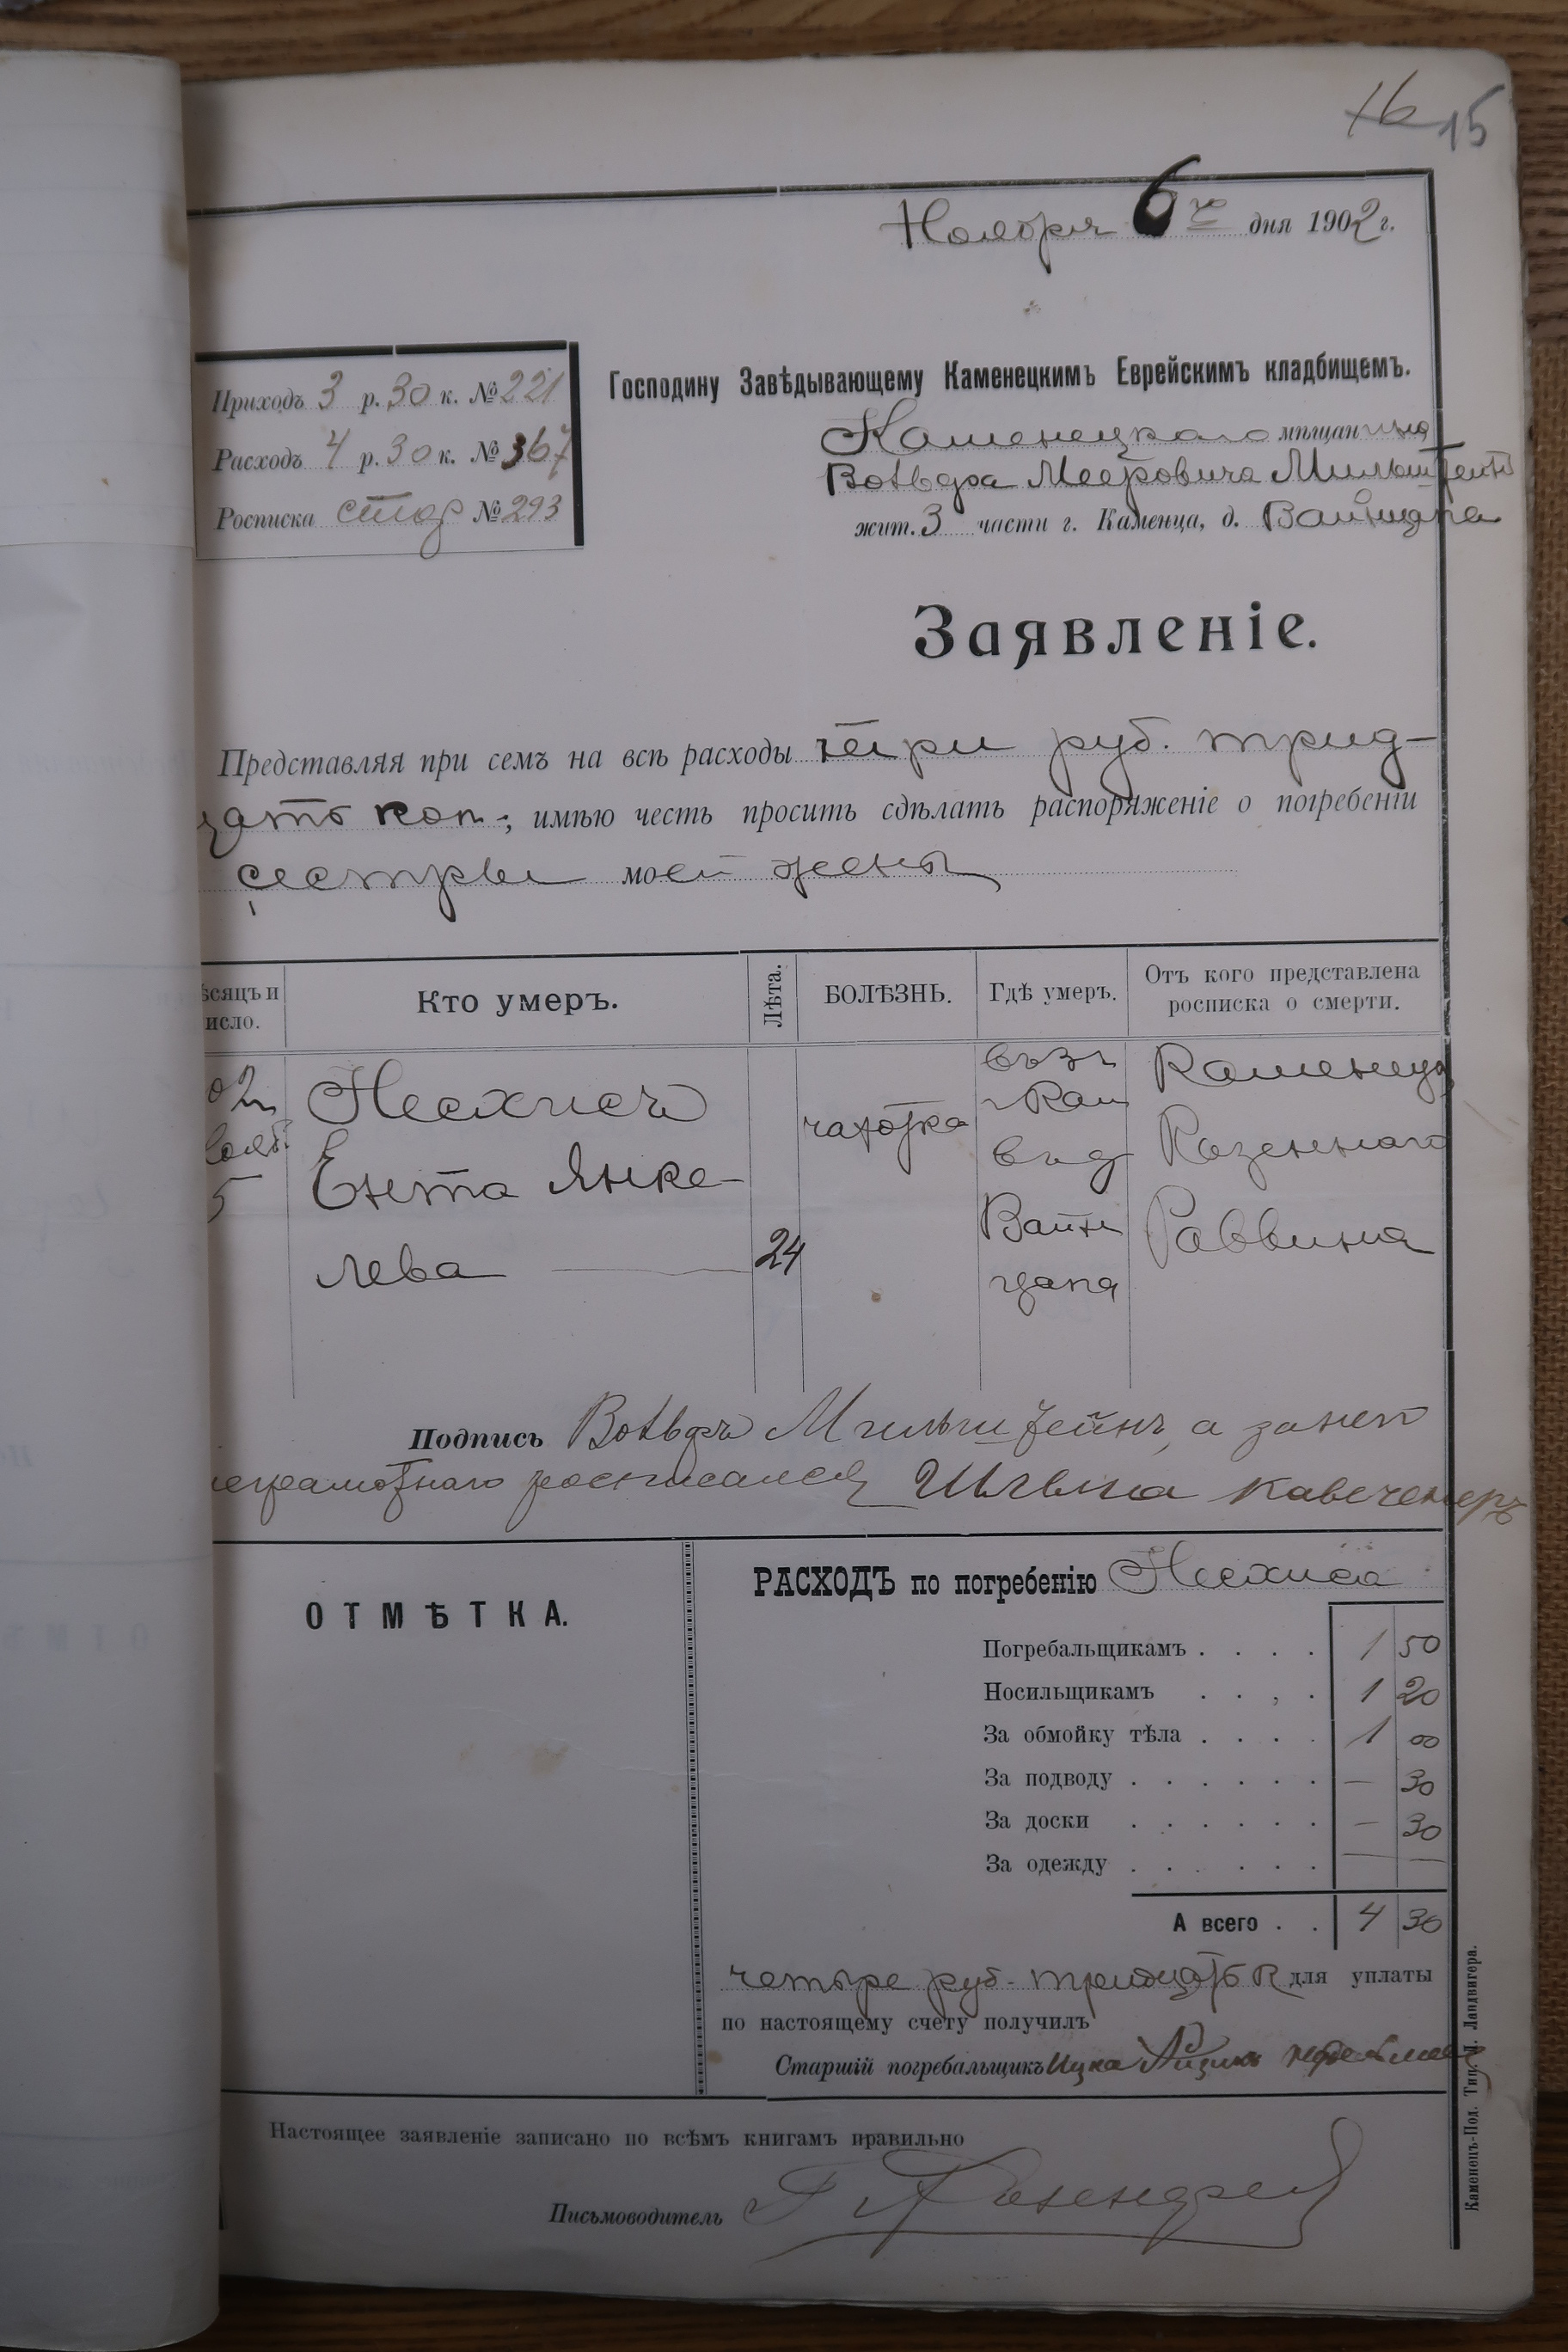 16 15
Ноября 6го дня 1902 г.
Приходъ 3 р. 30 к. № 221
Расходъ 4 р. 30 к. № 367
Росписка стар № 293
Господину Завѣдывающему Каменецкимъ Еврейскимъ кладбищемъ.
Каменецкаго мѣщанина
Вольфа Мееровича Мильштейн
жит. 3 части г. Каменца, д. Вайнцапа
Заявленіе.
Представляя при семъ на всѣ расходы три руб. трид-
цать коп., имѣю честь просить сдѣлать распоряженіе о погребеніи
сестры моей жены
ѣсяцъ и
исло.
Кто умеръ.
Лѣта.
БОЛѢЗНЬ.
Гдѣ умеръ.
Отъ кого представлена
росписка о смерти.
02
нояб.
5
Несхисъ
Ента Янке-
лева
24
чахотка
въ 3 ч
г Кам
въ д
Вайн
цапа
Каменецк
Казеннаго
Раввина
Подпись Вольфъ Мильштейнъ, а за него
неграмотнаго росписался Шлёма
ОТМѢТКА.
РАСХОДЪ по погребенію Несхиса
Погребальщикамъ . . . . 1 50
Носильщикамъ . . , . 1 20
За обмойку тѣла . . . . 1 00
За подводу . . . . . . — 30
За доски . . . . . . — 30
За одежду . . . . . . — —
А всего . . 4 30
четыре руб. тридцать к для уплаты
по настоящему счету получилъ
Старшій погребальщикъ Ицка
Настоящее заявленіе записано по всѣмъ книгамъ правильно
Письмоводитель
Каменецъ-Под. Тип. Л. Ландвигера.